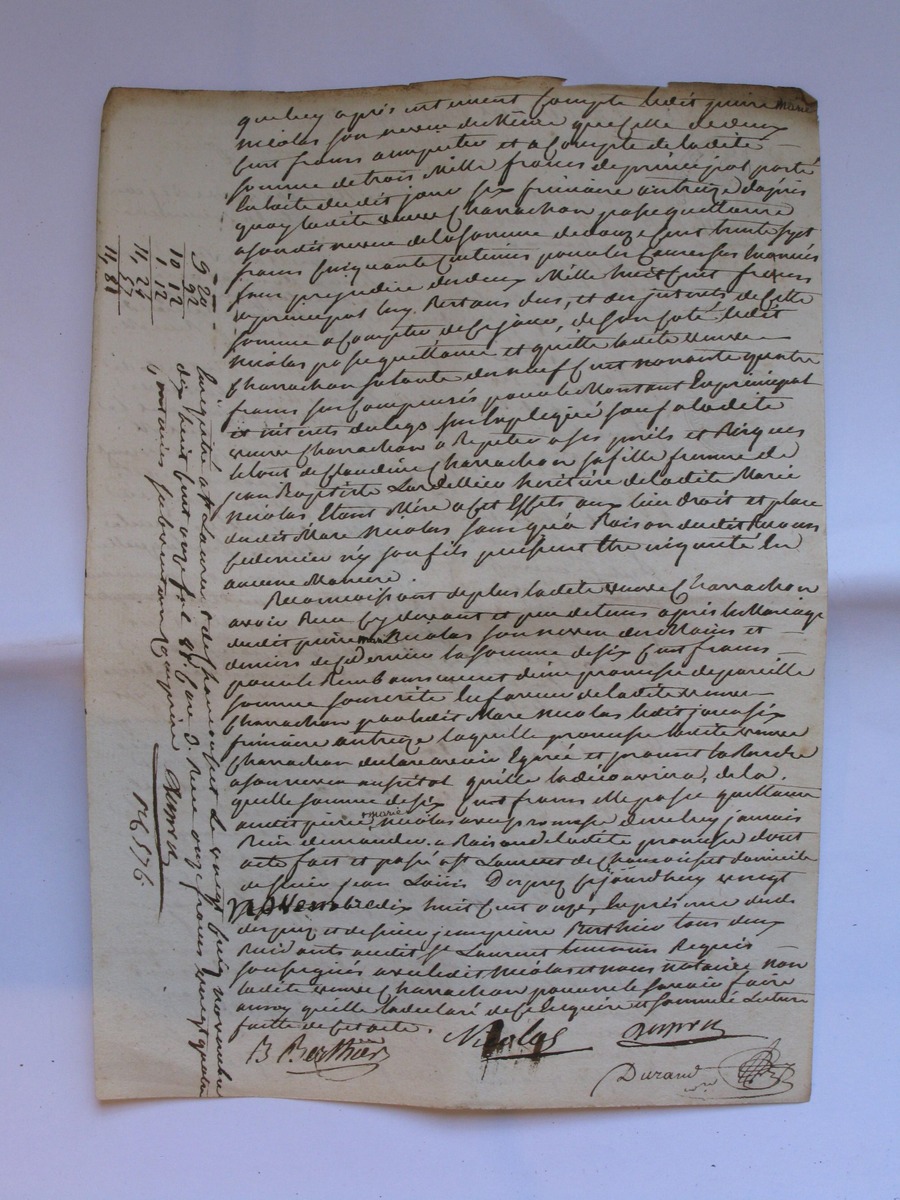 quelcy après entrement compte ledit pierre marie
Nicolas son neveu de même que celle de deux
cent francs a imputer et a compte de ladite
somme de trois Mille francs de principal porté
la date dudit jour six frimaire an treize d'après
quoy ladite veuve Charrachon passe quittance
a sondit neveu de la somme de douze cent trente sept
francs cinquante centimes pour les causes sus énoncées
sans prejudice des deux Mille huit cent francs
de principal luy Restans dus, et des interets de cette
somme a compter de ce jour, de son coté ledit
Nicolas passe quittance et quitte ladite veuve
Charrachon de neuf cent nonante quatre
francs sus compensés pour le Montant en principal
et interets du legs sus expliqué sauf a ladite
veuve Charrachon a Repeter a ses perils et Risques
le tout de Claudine Charrachon sa fille femme de
jean Baptiste Lardellier heritière de ladite Marie
Nicolas Etant Mise a cet Effet aux lieu droit et place
dudit Marc Nicolas sans qu'a Raison dudit Recours
ce dernier n'y son fils puissent être inquiétés en
aucune Maniere.
Reconnoissant de plus ladite veuve Charrachon
avoir Reçu cy devant et peu de tems après le Mariage
dudit pierre marie Nicolas son neveu des Mains et
deniers de ce dernier la somme de six cent francs
pour le Remboursement d'une promesse de pareille
somme souscrite en faveur de ladite veuve
Charrachon par ledit Marc Nicolas ledit jour six
frimaire an treize laquelle promesse ladite veuve
Charrachon declare avoir Egarée et promet la Rendre
a son neveu aussitot qu'elle la découvrira, de la
quelle somme de six cent francs elle passe quittance
audit pierre marie Nicolas avec promesse de ne luy jamais
Rien demander a Raison de ladite promesse dont
acte fait et passé a St Laurent de Chamousset domicile
de sieur jean Louis Dupré cejourdhuy vingt
novembre dix huit cent onze, En présence dudit
dupré et de sieur jean pierre Berthier tous deux
Residants audit St Laurent temoins Requis
soussignés avec ledit Nicolas et nous notaires non
ladite veuve Charrachon pour ne le savoir faire
ainsy qu'elle la declaré de ce Enquise et sommée Lecture
faitte de cet acte.
B Berthier
Nicolas
Dupré
Durand
9 20
92
10 12
1. 12
11, 24
57
11, 81
Enrégistré a St Laurent de Chamousset le vingt cinq novembre
dix huit cent onze fol. 88. Case 3. Reçu onze francs vingt quatre
centimes subvention comprise Dupré
176, 576.